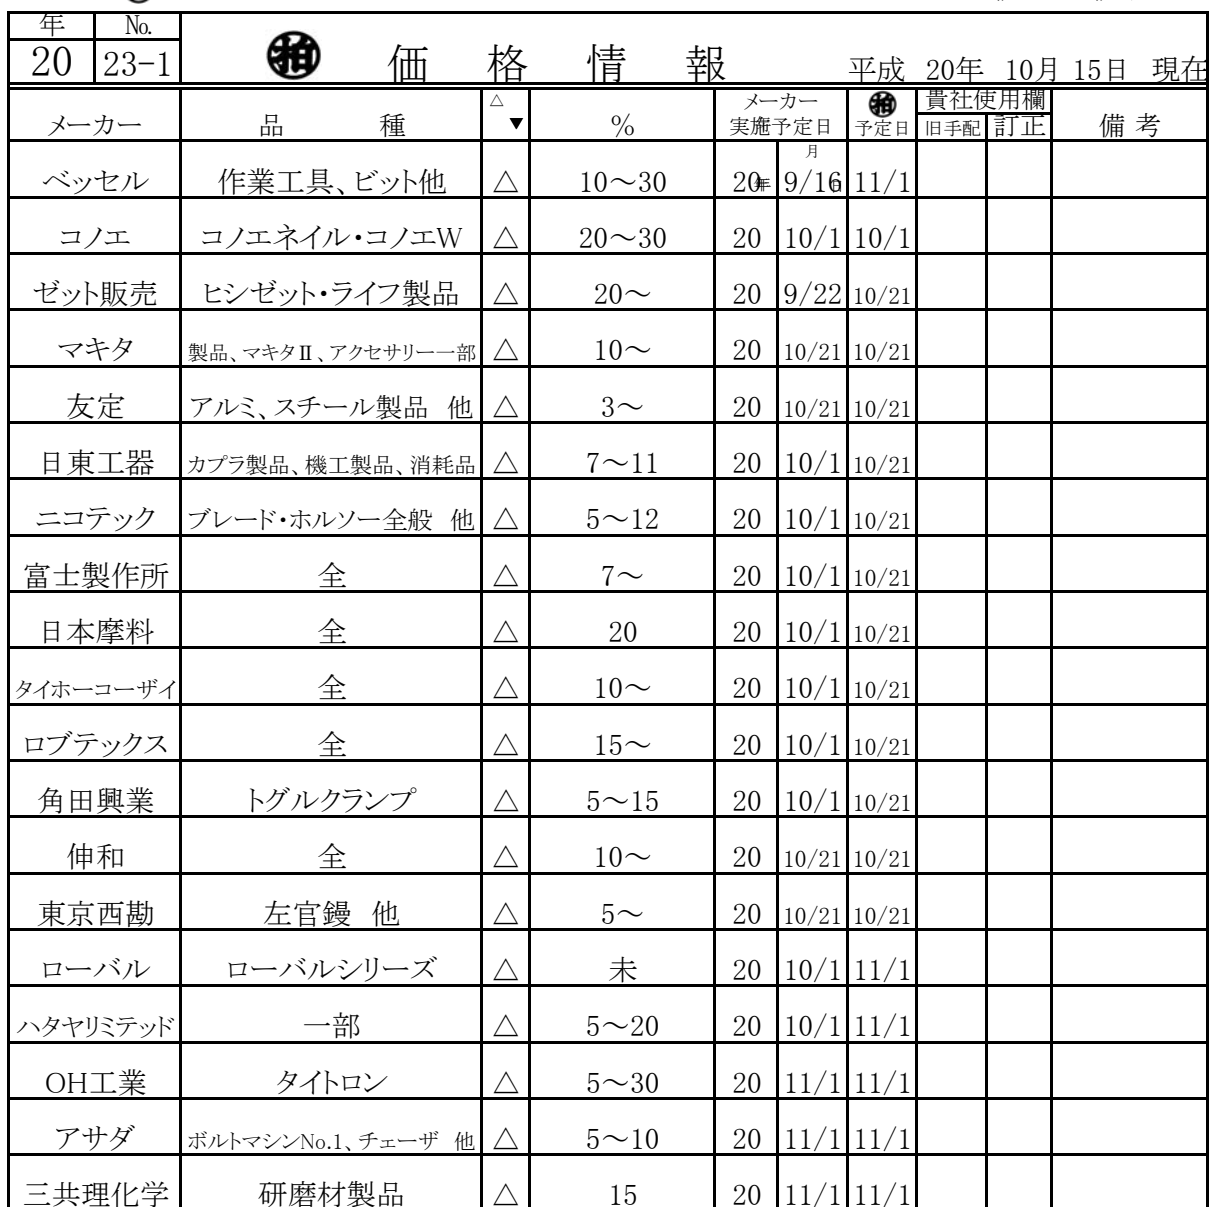 年 No.
20 23-1 ㊞ 価格情報 平成 20年 10月 15日 現在
メーカー 品種 △▼ % メーカー実施予定日 予定日 貴社使用欄 旧手配 訂正 備考
ベッセル 作業工具、ビット他 △ 10～30 20年 9月/16日 11/1
コノエ コノエネイル・コノエW △ 20～30 20 10/1 10/1
ゼット販売 ヒシゼット・ライフ製品 △ 20～ 20 9/22 10/21
マキタ 製品、マキタⅡ、アクセサリー一部 △ 10～ 20 10/21 10/21
友定 アルミ、スチール製品 他 △ 3～ 20 10/21 10/21
日東工器 カプラ製品、機工製品、消耗品 △ 7～11 20 10/1 10/21
ニコテック ブレード・ホルソー全般 他 △ 5～12 20 10/1 10/21
富士製作所 全 △ 7～ 20 10/1 10/21
日本摩料 全 △ 20 20 10/1 10/21
タイホーコーザイ 全 △ 10～ 20 10/1 10/21
ロブテックス 全 △ 15～ 20 10/1 10/21
角田興業 トグルクランプ △ 5～15 20 10/1 10/21
伸和 全 △ 10～ 20 10/21 10/21
東京西勘 左官鏝 他 △ 5～ 20 10/21 10/21
ローバル ローバルシリーズ △ 未 20 10/1 11/1
ハタヤリミテッド 一部 △ 5～20 20 10/1 11/1
OH工業 タイトロン △ 5～30 20 11/1 11/1
アサダ ボルトマシンNo.1、チェーザ 他 △ 5～10 20 11/1 11/1
三共理化学 研磨材製品 △ 15 20 11/1 11/1